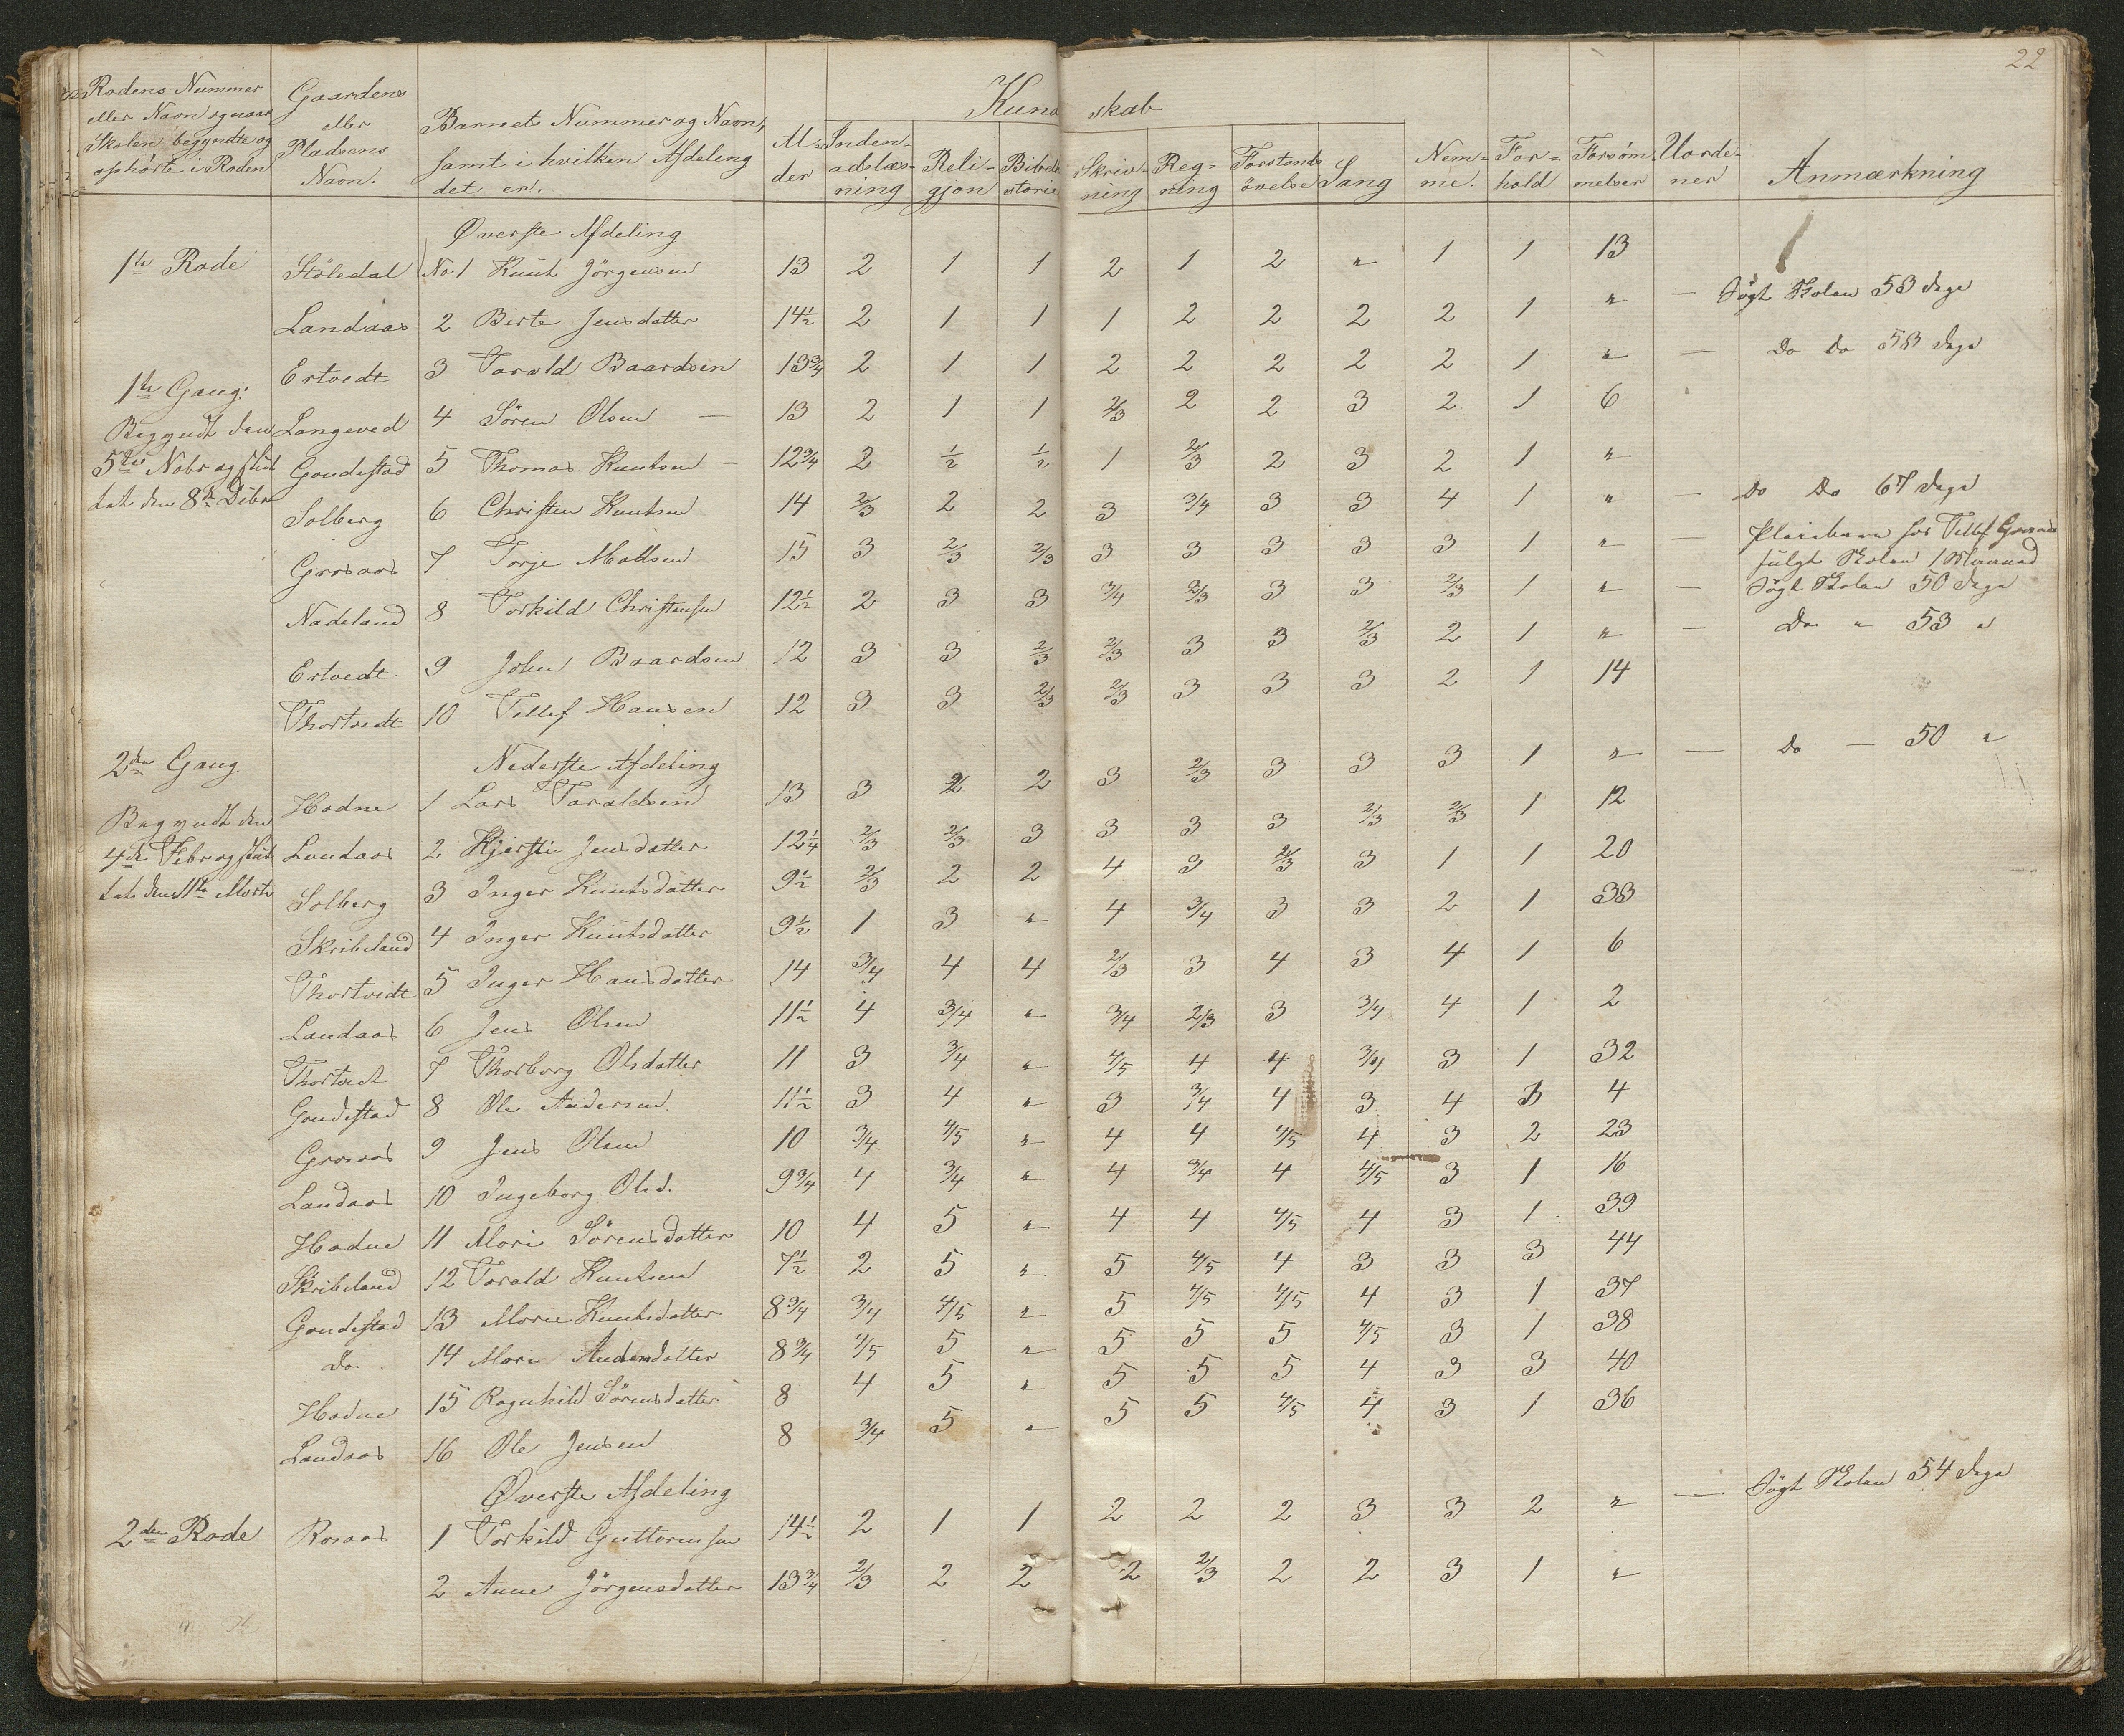 22
Rodens Nummer eller Navn og naar Skolen begyndte og ophörte i Roden
Gaardens eller Pladsens Navn.
Barnets Nummer og Navn, samt i hvilken Afdeling det er.
Alder
Kundskab
Indenadslæsning
Religjon
Bibelhistorie
Skrivning
Regning
Forstandsövelse
Sang
Nemme.
Forhold
Forsömmelser
Uordener
Anmærkning
Øverste Afdeling
1te Rode Stöledal No 1 Knut Jörgensen 13 2 1 1 2 1 2 " 1 1 13
Landaas 2 Birte Jensdatter 14½ 2 1 1 1 2 2 2 2 1 " — Sögt Skolen 53 dage
Ertvedt 3 Tarald Baardsen 13¾ 2 1 1 2 2 2 2 2 1 " — Do Do 53 dage
1te Gang:
Langeved 4 Sören Olsen — 13 2 1 1 2/3 2 2 3 2 1 6
Begyndt den
5te Nobr og slut
tet den 8de Debr
Goudestad 5 Thomas Knutsen — 12¾ 2 ½ ½ 1 2/3 2 3 2 1 "
Solberg 6 Christen Knutsen 14 2/3 2 2 3 3/4 3 3 4 1 " — Do Do 67 dage
Grosaas 7 Torje Madsen 15 3 2/3 2/3 3 3 3 3 3 1 " — Pleiebarn hos Tellef Grosaas
fulgt Skolen 1 Maaned
Nadeland 8 Torkild Christensen 12½ 2 3 3 3/4 2/3 3 3 2/3 1 " — Sögt Skolen 50 dage
Ertvedt 9 John Baardsen 12 3 3 2/3 2/3 3 3 2/3 2 1 " — Do " 53 "
Thortvedt 10 Tellef Hansen 12 3 3 2/3 2/3 3 3 3 2 1 14
2den Gang
Nederste Afdeling
Hodne 1 Lars Taraldsen 13 3 2 2 3 2/3 3 3 3 1 " — Do — 50 "
Begyndt den
4de Febr og slut
tet den 11te Marts
Landaas 2 Kjerstie Jensdatter 12¼ 2/3 2/3 3 3 3 3 2/3 2/3 1 12
Solberg 3 Inger Knutsdatter 9½ 2/3 2 2 4 3 2/3 3 1 1 20
Skribeland 4 Inger Knutsdatter 9½ 1 3 " 4 3/4 3 3 2 1 33
Thortvedt 5 Inger Hansdatter 14 3/4 4 4 2/3 3 4 3 4 1 6
Landaas 6 Jens Olsen 11½ 4 3/4 " 3/4 2/3 3 3/4 4 1 2
Thortvedt 7 Thorborg Olsdatter 11 3 3/4 " 4/5 4 4 3/4 3 1 32
Goudestad 8 Ole Andersen 11½ 3 4 " 3 3/4 4 3 4 3 4
Grosaas 9 Jens Olsen 10 3/4 4/5 " 4 4 4/5 4 3 2 23
Landaas 10 Ingeborg Olsd. 9¾ 4 3/4 " 4 3/4 4 4/5 3 1 16
Hodne 11 Mari Sörensdatter 10 4 5 " 4 4 4/5 4 3 1 39
Skribeland 12 Tarald Knutsen 7½ 2 5 " 5 4/5 4 3 3 3 44
Goudestad 13 Marie Knutsdatter 8¾ 3/4 4/5 " 5 4/5 4/5 4 3 1 37
Do 14 Marie Andersdatter 8¾ 4/5 5 " 5 5 5 4/5 3 1 38
Hodne 15 Ragnhild Sörensdatter 8 4 5 " 5 5 5 4 3 3 40
Landaas 16 Ole Jensen 8 3/4 5 " 5 5 4/5 4 3 1 36
Øverste Afdeling
2den Rode Rosaas 1 Torkild Guttormsen 14½ 2 1 1 2 2 2 3 3 2 " — Sögt Skolen 54 dage
2 Anne Jörgensdatter 13¾ 2/3 2 2 2 2/3 2 2 3 1 "